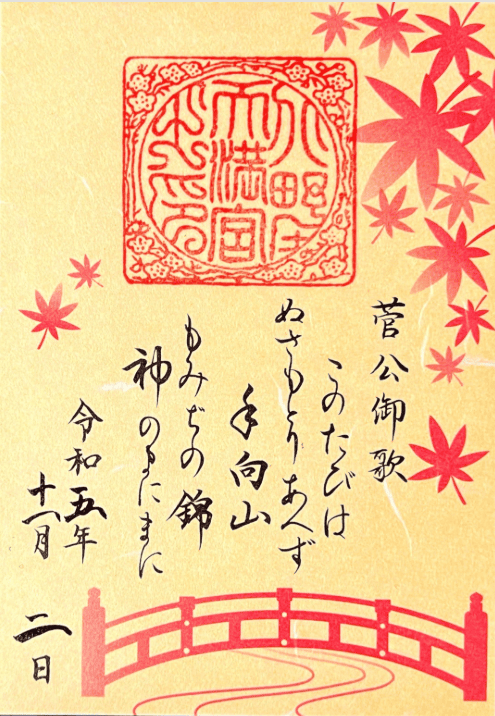 天満宮
之印
菅公御歌
このたびは
ぬさもとりあへず
手向山
もみぢの錦
神のまにまに
令和五年
十一月 二日